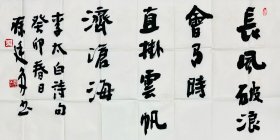 長風破浪
會有時
直掛雲帆
濟滄海
李太白詩句
癸卯春日